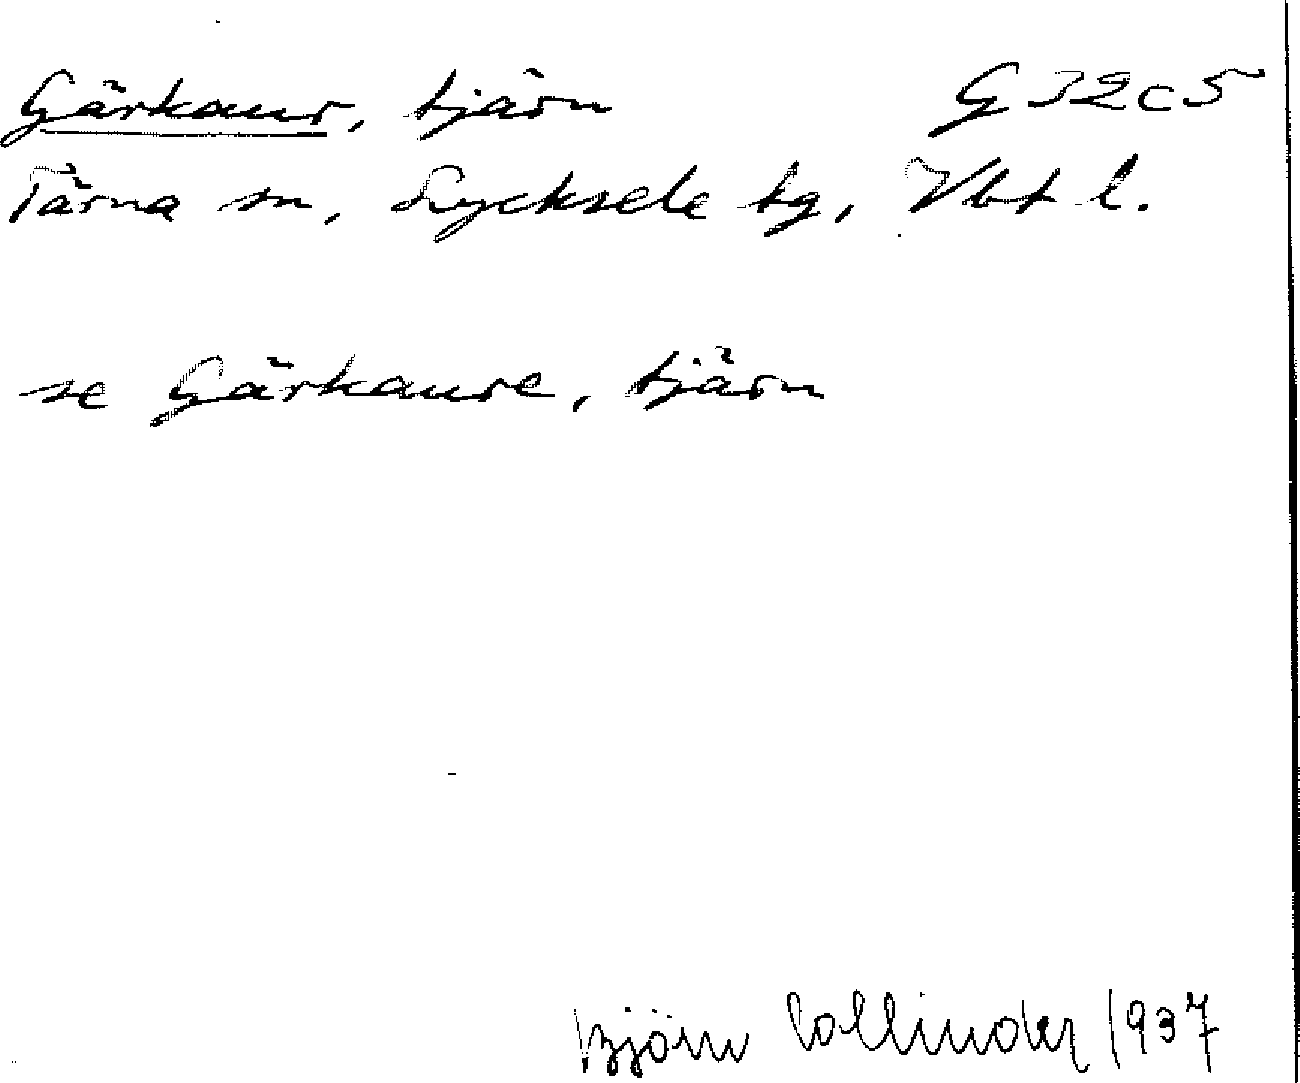 Gärkaur, tjärn G 32 c 5
Tärna sn, Lycksele tg, Vbt l.
se Gärkaure, tjärn
Björn Collinder 1937